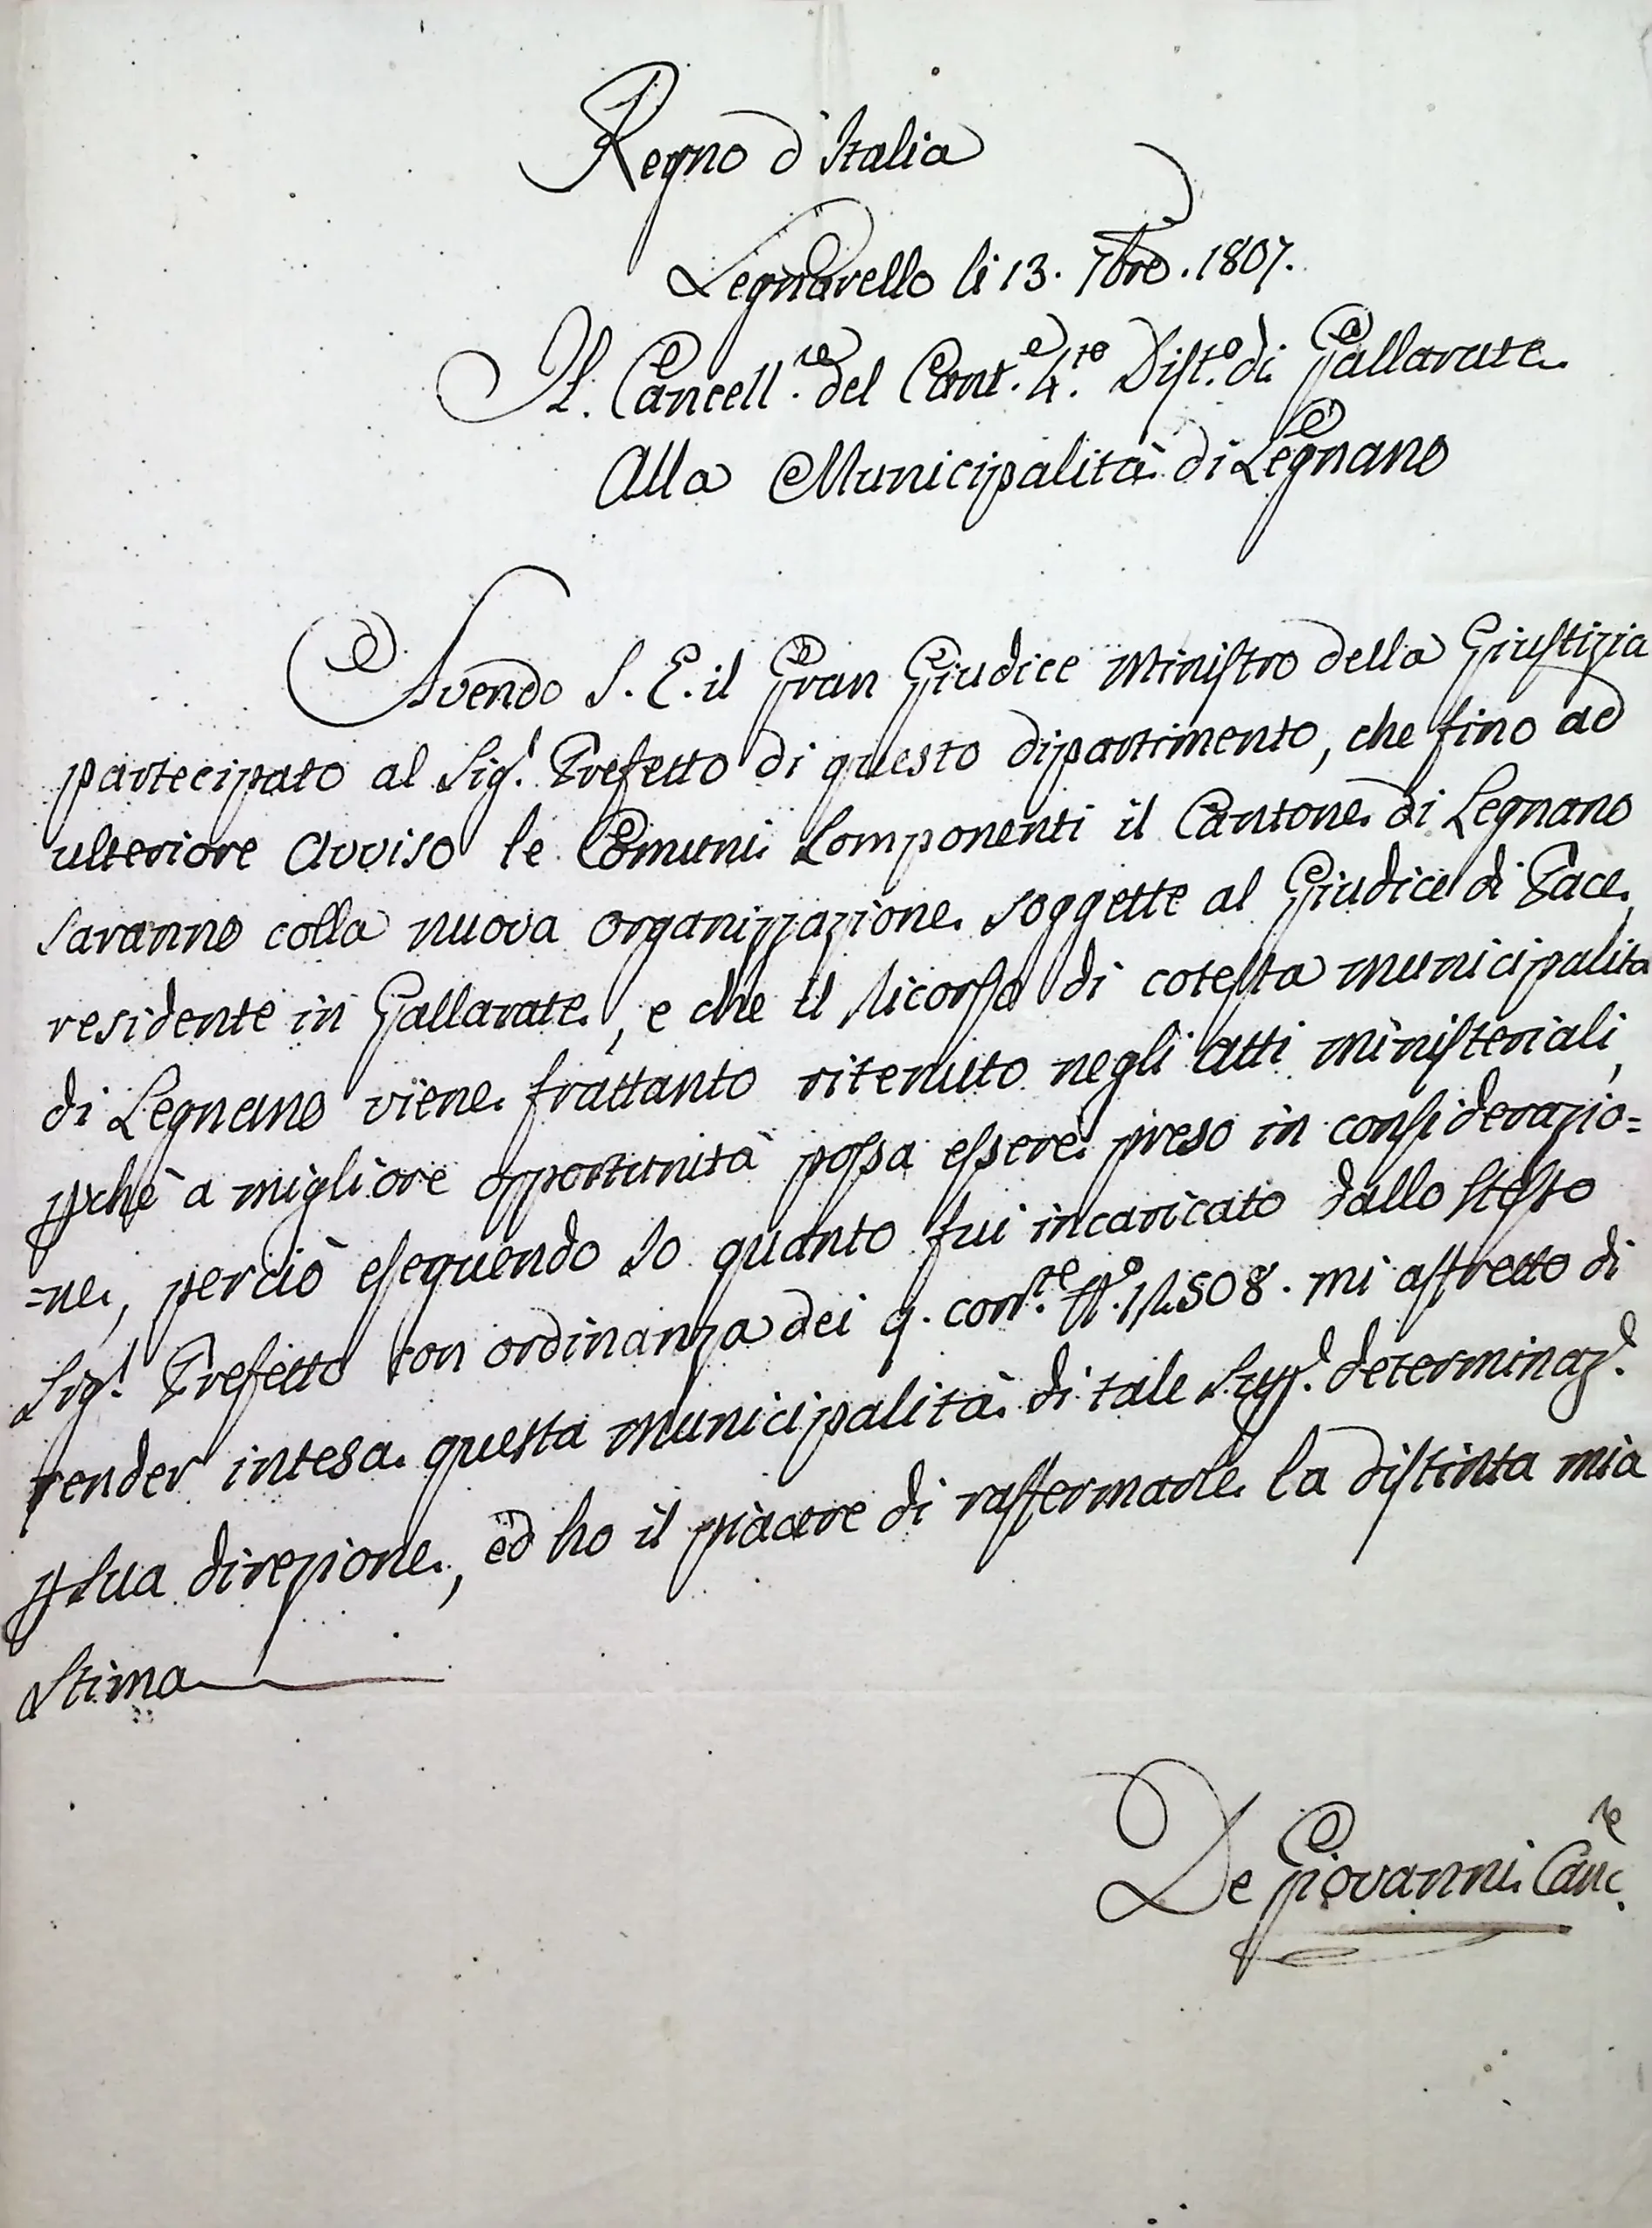 Regno d'Italia
Legnarello li 13. 7bre. 1807.
Il Cancell.re del Cant.e 4.to Dist.o di Gallarate
Alla Municipalità di Legnano
Avendo S. E. il Gran Giudice Ministro della Giustizia
partecipato al Sig.r Prefetto di questo dipartimento, che fino ad
ulteriore avviso le Comuni Componenti il Cantone di Legnano
saranno colla nuova organizzazione soggette al Giudice di Pace
residente in Gallarate, e che il ricorso di cotesta municipalità
di Legnano viene frattanto ritenuto negli atti ministeriali,
pchè a migliore opportunità possa essere preso in considerazio=
=ne, perciò eseguendo Io quanto fui incaricato dallo stesso
Sig.r Prefetto con ordinanza dei 9. corr.te N.o mi affretto di
render intesa questa municipalità di tale Sup.r determinaz.e
p sua direzione, ed ho il piacere di raffermarle la distinta mia
stima
De Giovanni Canc.re